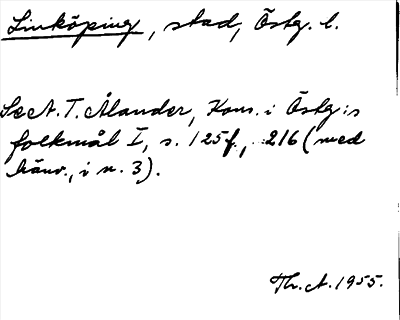 Linköping, stad, Östg. l.
Se A. T. Ålander, Kons. i Östg:s
folkmål I, s. 125f., 216 (med
hänv., i n. 3).
Th. A. 1955.